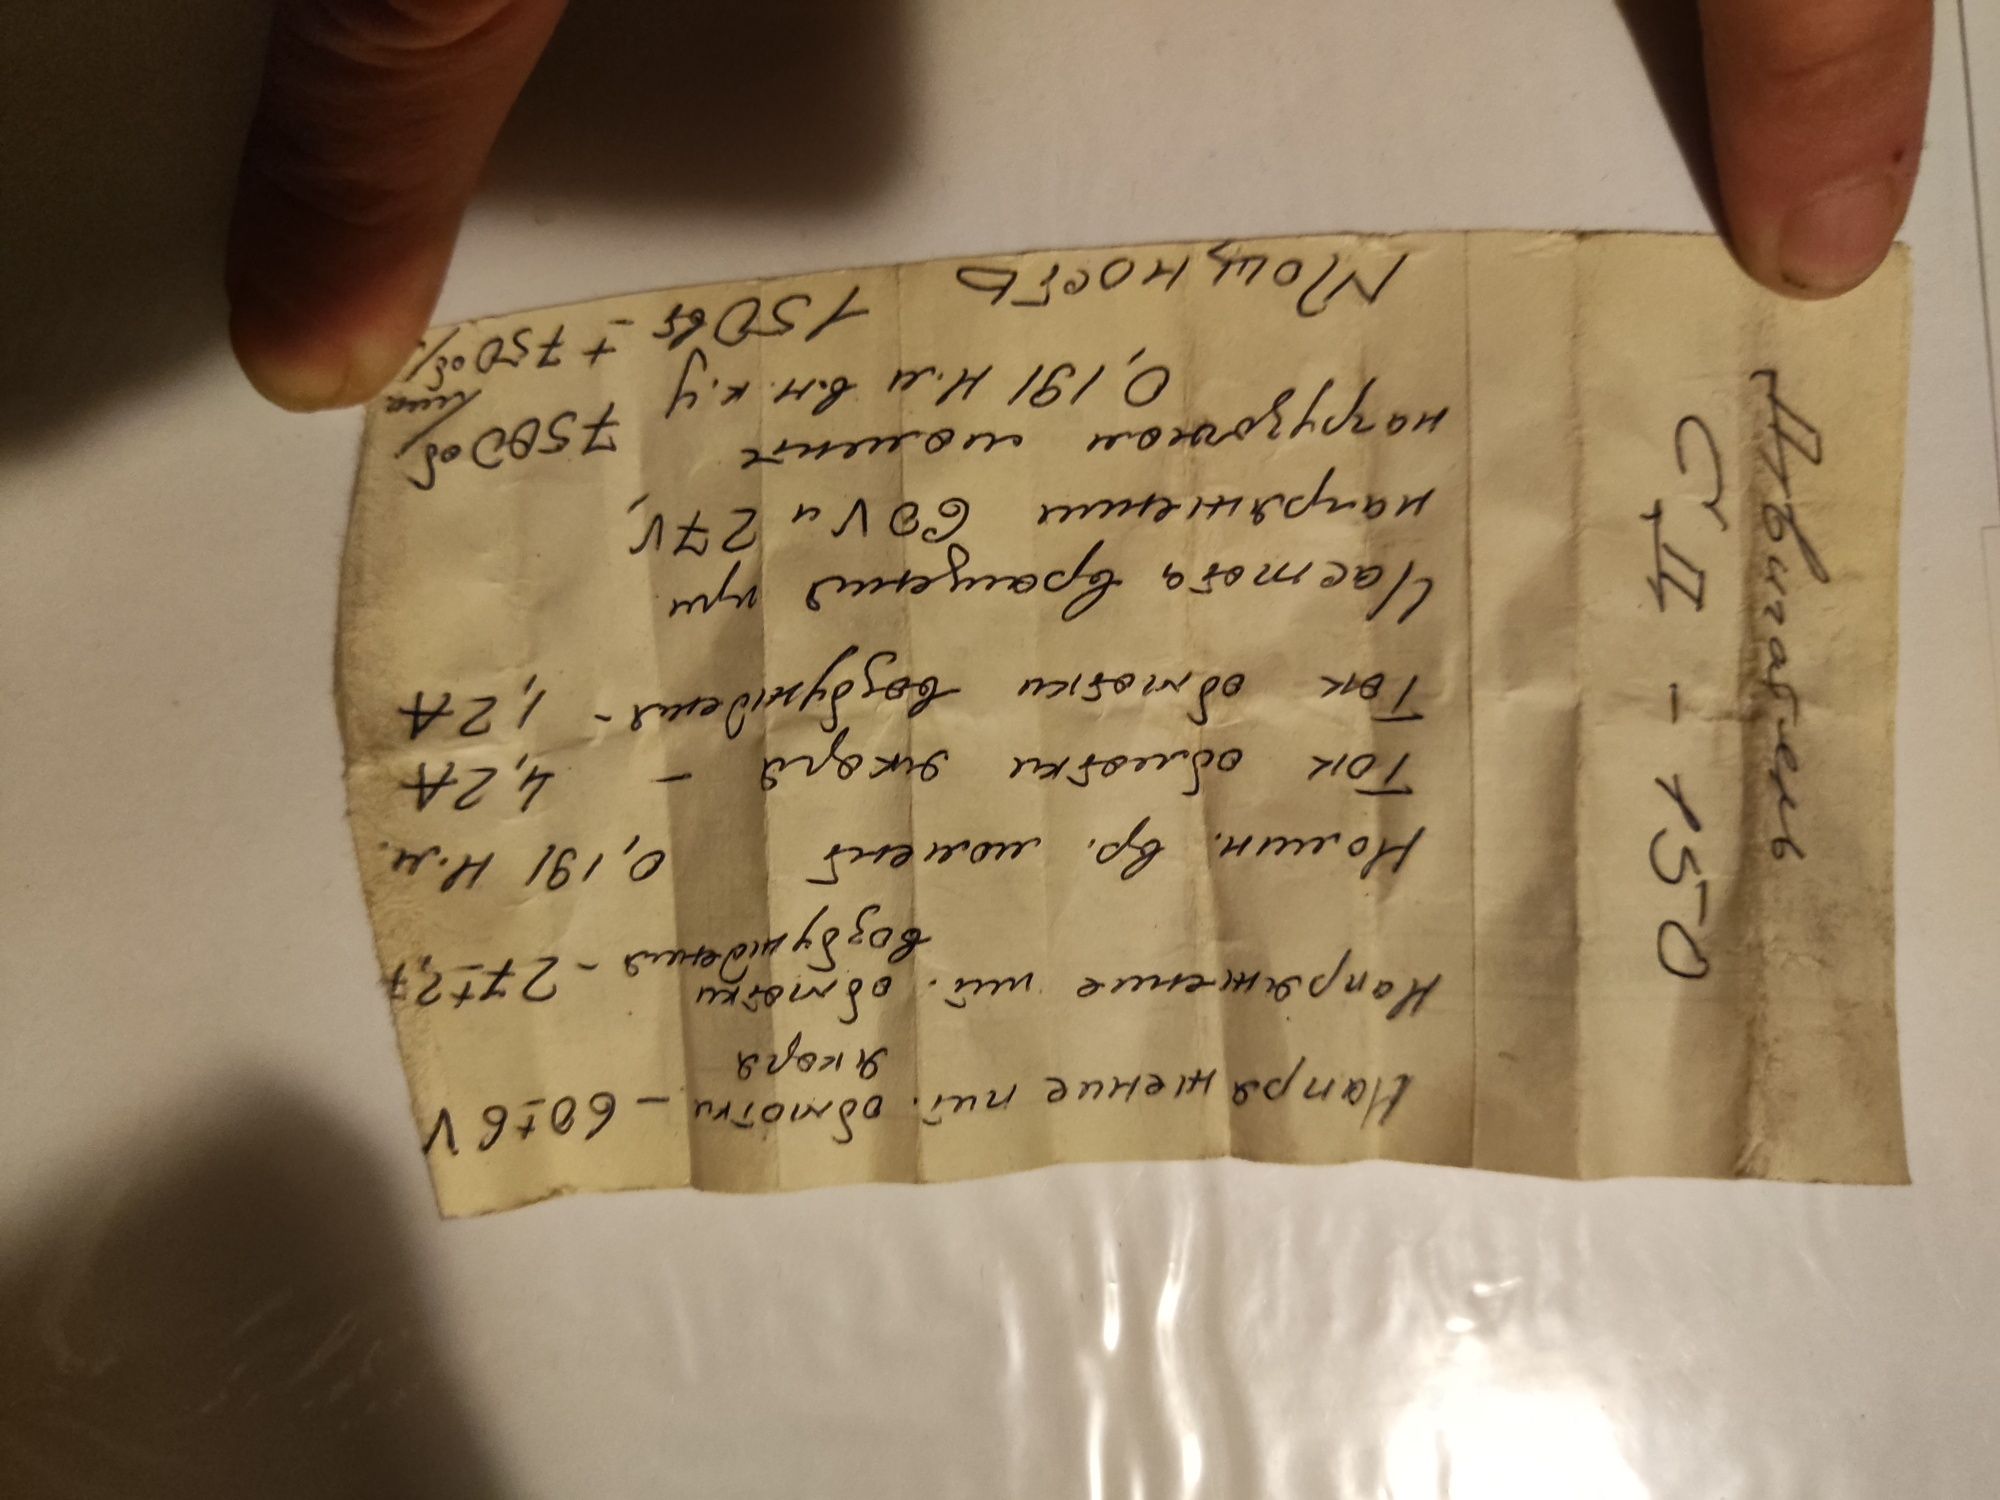 Двигатель
СД - 150
Напряжение пит. обмотки - 60±6 V
якоря
Напряжение пит. обмотки - 27±2,7
возбуждения
Номин. вр. момент 0,191 Н.м.
Ток обмотки якоря - 4,2А
Ток обмотки возбуждения - 1,2А
Частота вращения при
напряжении 60V и 27V,
нагрузочном моменте 7500 об/мин
0,191 Н.м в.н.к.у ± 750 об/
Мощность 150 вт